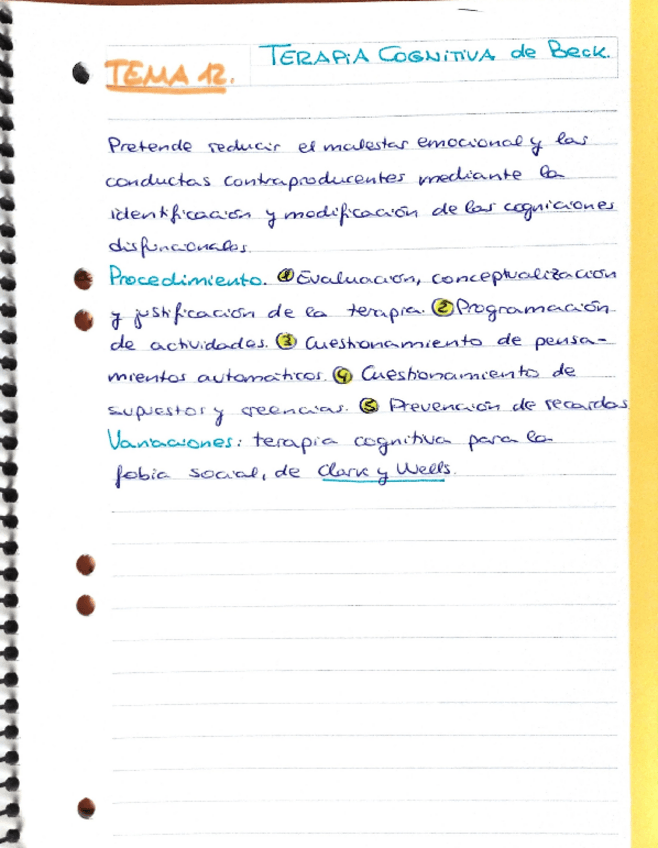 TERAPIA COGNITIVA de Beck.
TEMA 12.
Pretende reducir el malestar emocional y las
conductas contraproducentes mediante la
identificación y modificación de las cogniciones
disfuncionales.
Procedimiento. ① Evaluación, conceptualización
y justificación de la terapia. ② Programación
de actividades. ③ Cuestionamiento de pensa-
mientos automáticos. ④ Cuestionamiento de
supuestos y creencias. ⑤ Prevención de recaídas
Variaciones: terapia cognitiva para la
fobia social, de Clark y Wells.